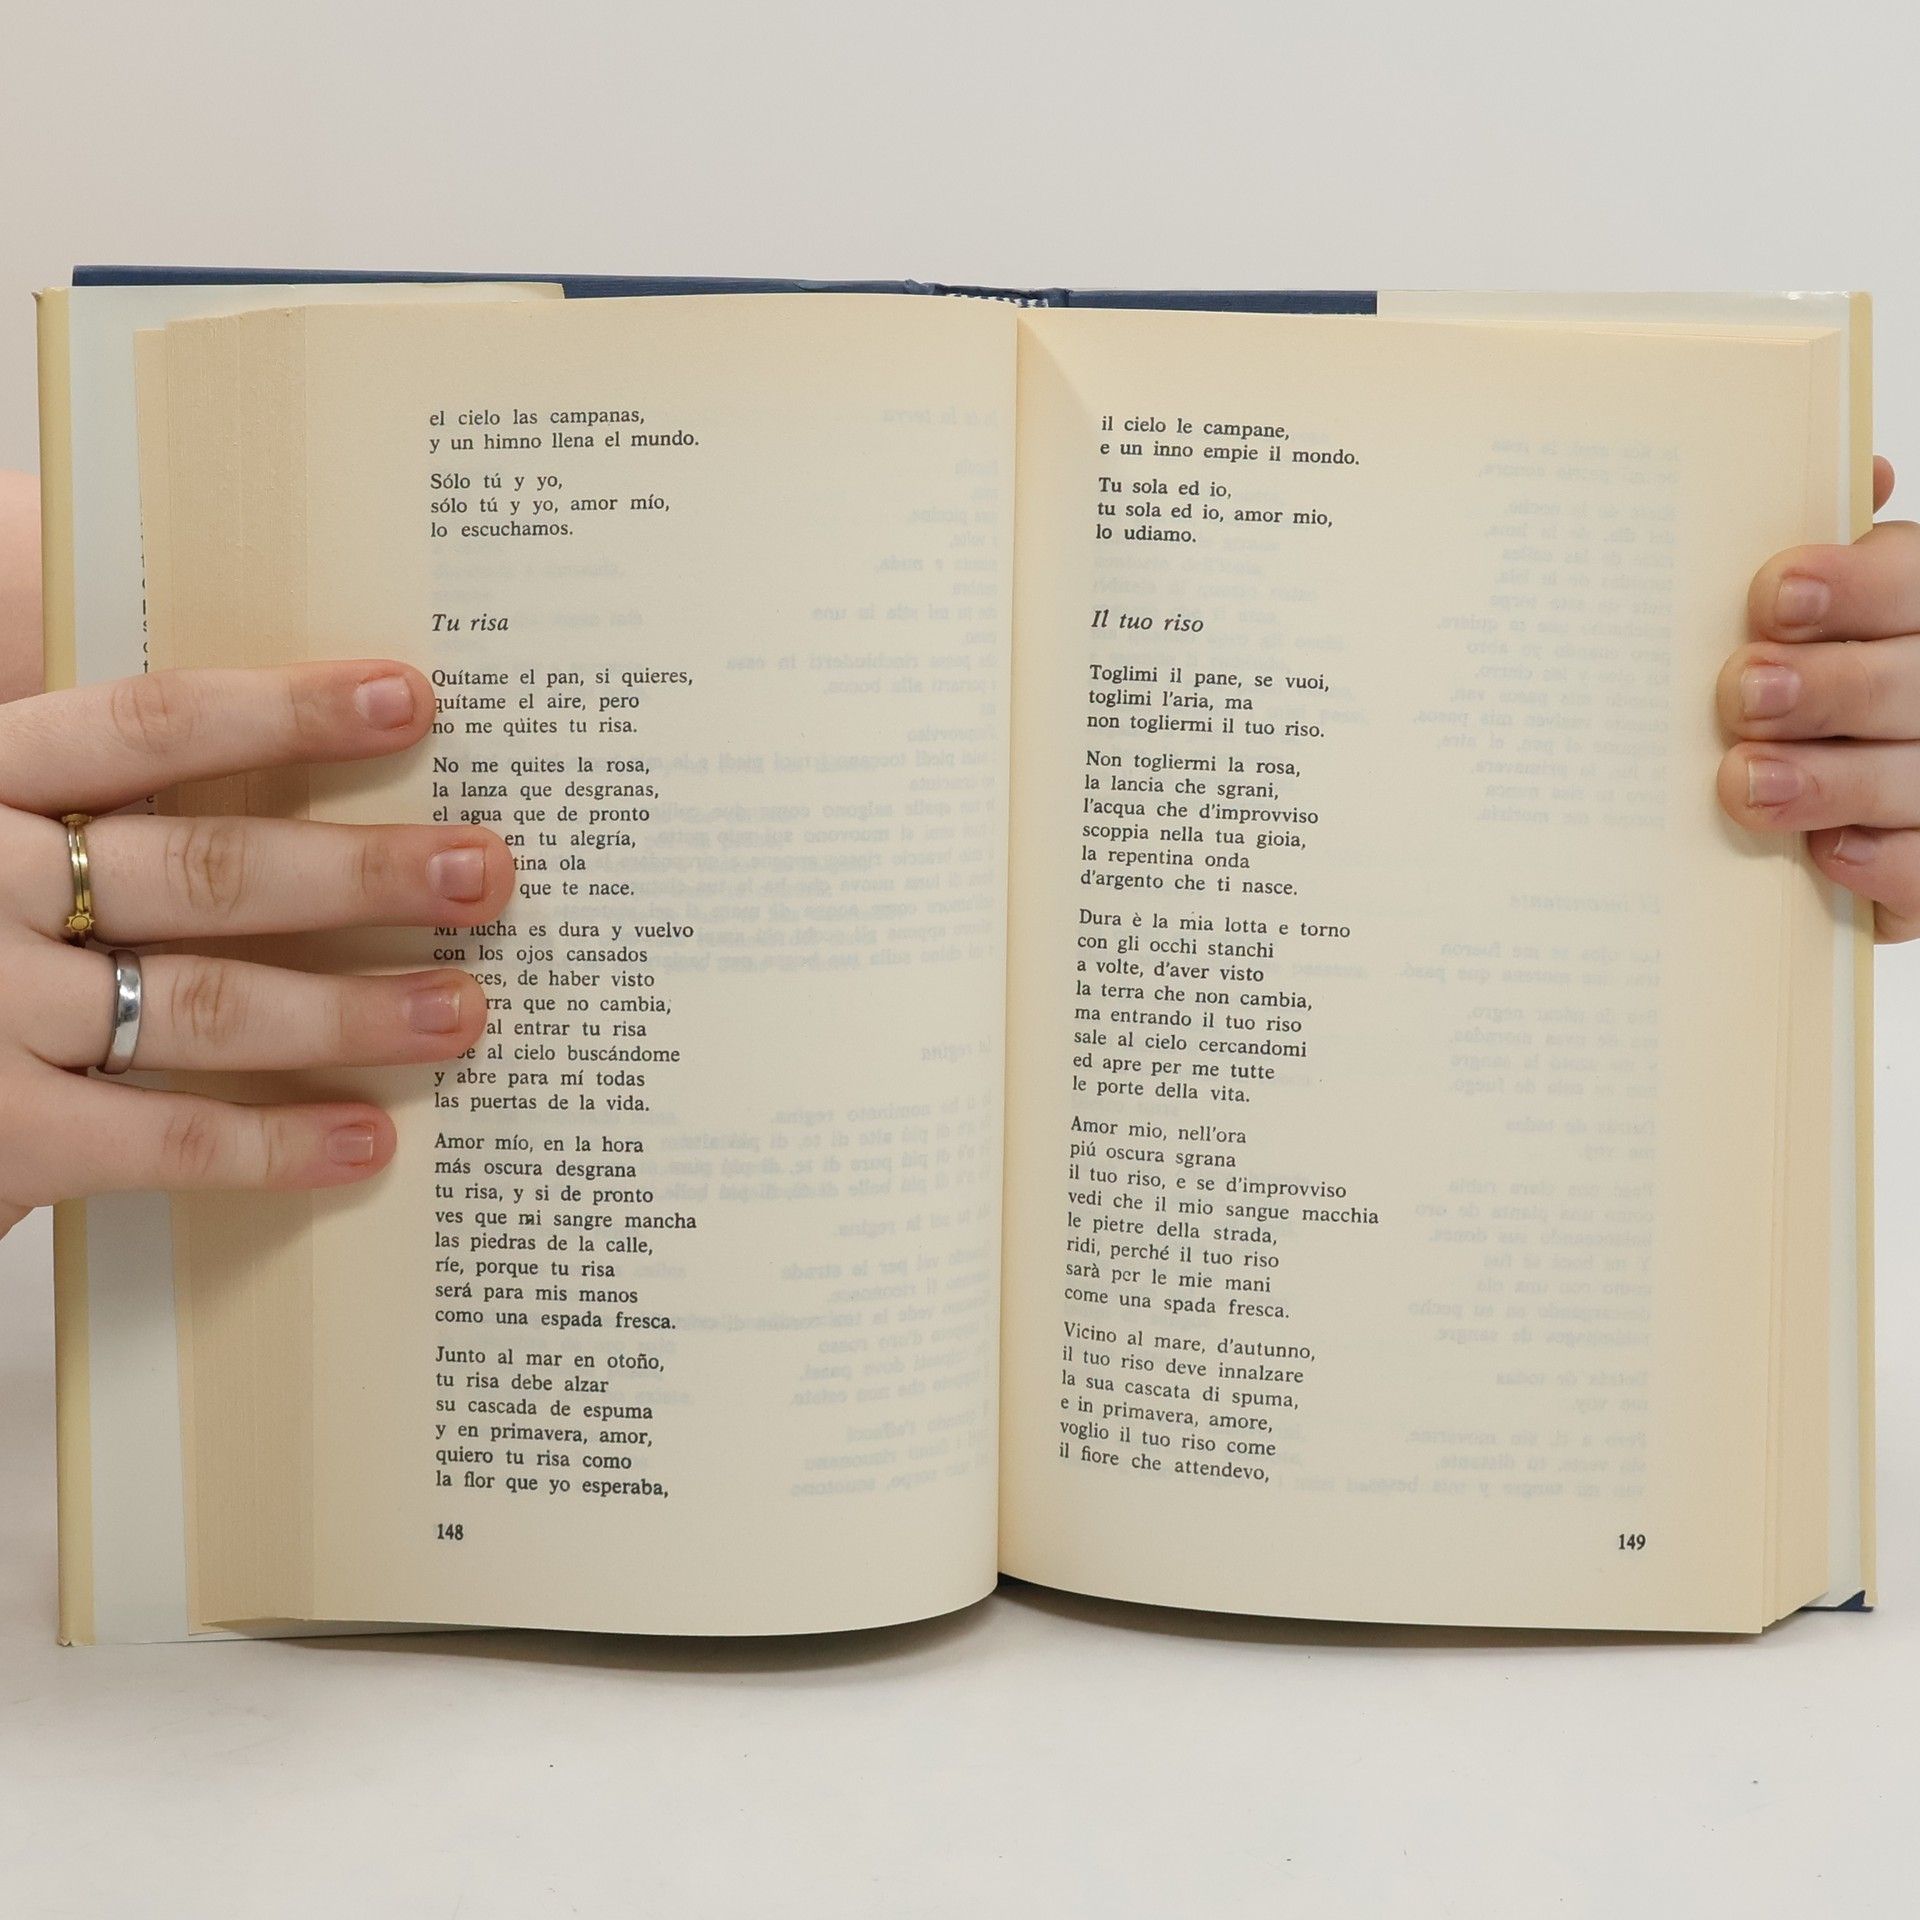 el cielo las campanas,
y un himno llena el mundo.
Sólo tú y yo,
sólo tú y yo, amor mío,
lo escuchamos.
Tu risa
Quítame el pan, si quieres,
quítame el aire, pero
no me quites tu risa.
No me quites la rosa,
la lanza que desgranas,
el agua que de pronto
en tu alegría,
ola
que te nace.
Mi lucha es dura y vuelvo
con los ojos cansados
de haber visto
que no cambia,
al entrar tu risa
al cielo buscándome
y abre para mí todas
las puertas de la vida.
Amor mío, en la hora
más oscura desgrana
tu risa, y si de pronto
ves que mi sangre mancha
las piedras de la calle,
ríe, porque tu risa
será para mis manos
como una espada fresca.
Junto al mar en otoño,
tu risa debe alzar
su cascada de espuma
y en primavera, amor,
quiero tu risa como
la flor que yo esperaba,
148
il cielo le campane,
e un inno empie il mondo.
Tu sola ed io,
tu sola ed io, amor mio,
lo udiamo.
Il tuo riso
Toglimi il pane, se vuoi,
toglimi l'aria, ma
non togliermi il tuo riso.
Non togliermi la rosa,
la lancia che sgrani,
l'acqua che d'improvviso
scoppia nella tua gioia,
la repentina onda
d'argento che ti nasce.
Dura è la mia lotta e torno
con gli occhi stanchi
a volte, d'aver visto
la terra che non cambia,
ma entrando il tuo riso
sale al cielo cercandomi
ed apre per me tutte
le porte della vita.
Amor mio, nell'ora
piú oscura sgrana
il tuo riso, e se d'improvviso
vedi che il mio sangue macchia
le pietre della strada,
ridi, perché il tuo riso
sarà per le mie mani
come una spada fresca.
Vicino al mare, d'autunno,
il tuo riso deve innalzare
la sua cascata di spuma,
e in primavera, amore,
voglio il tuo riso come
il fiore che attendevo,
149